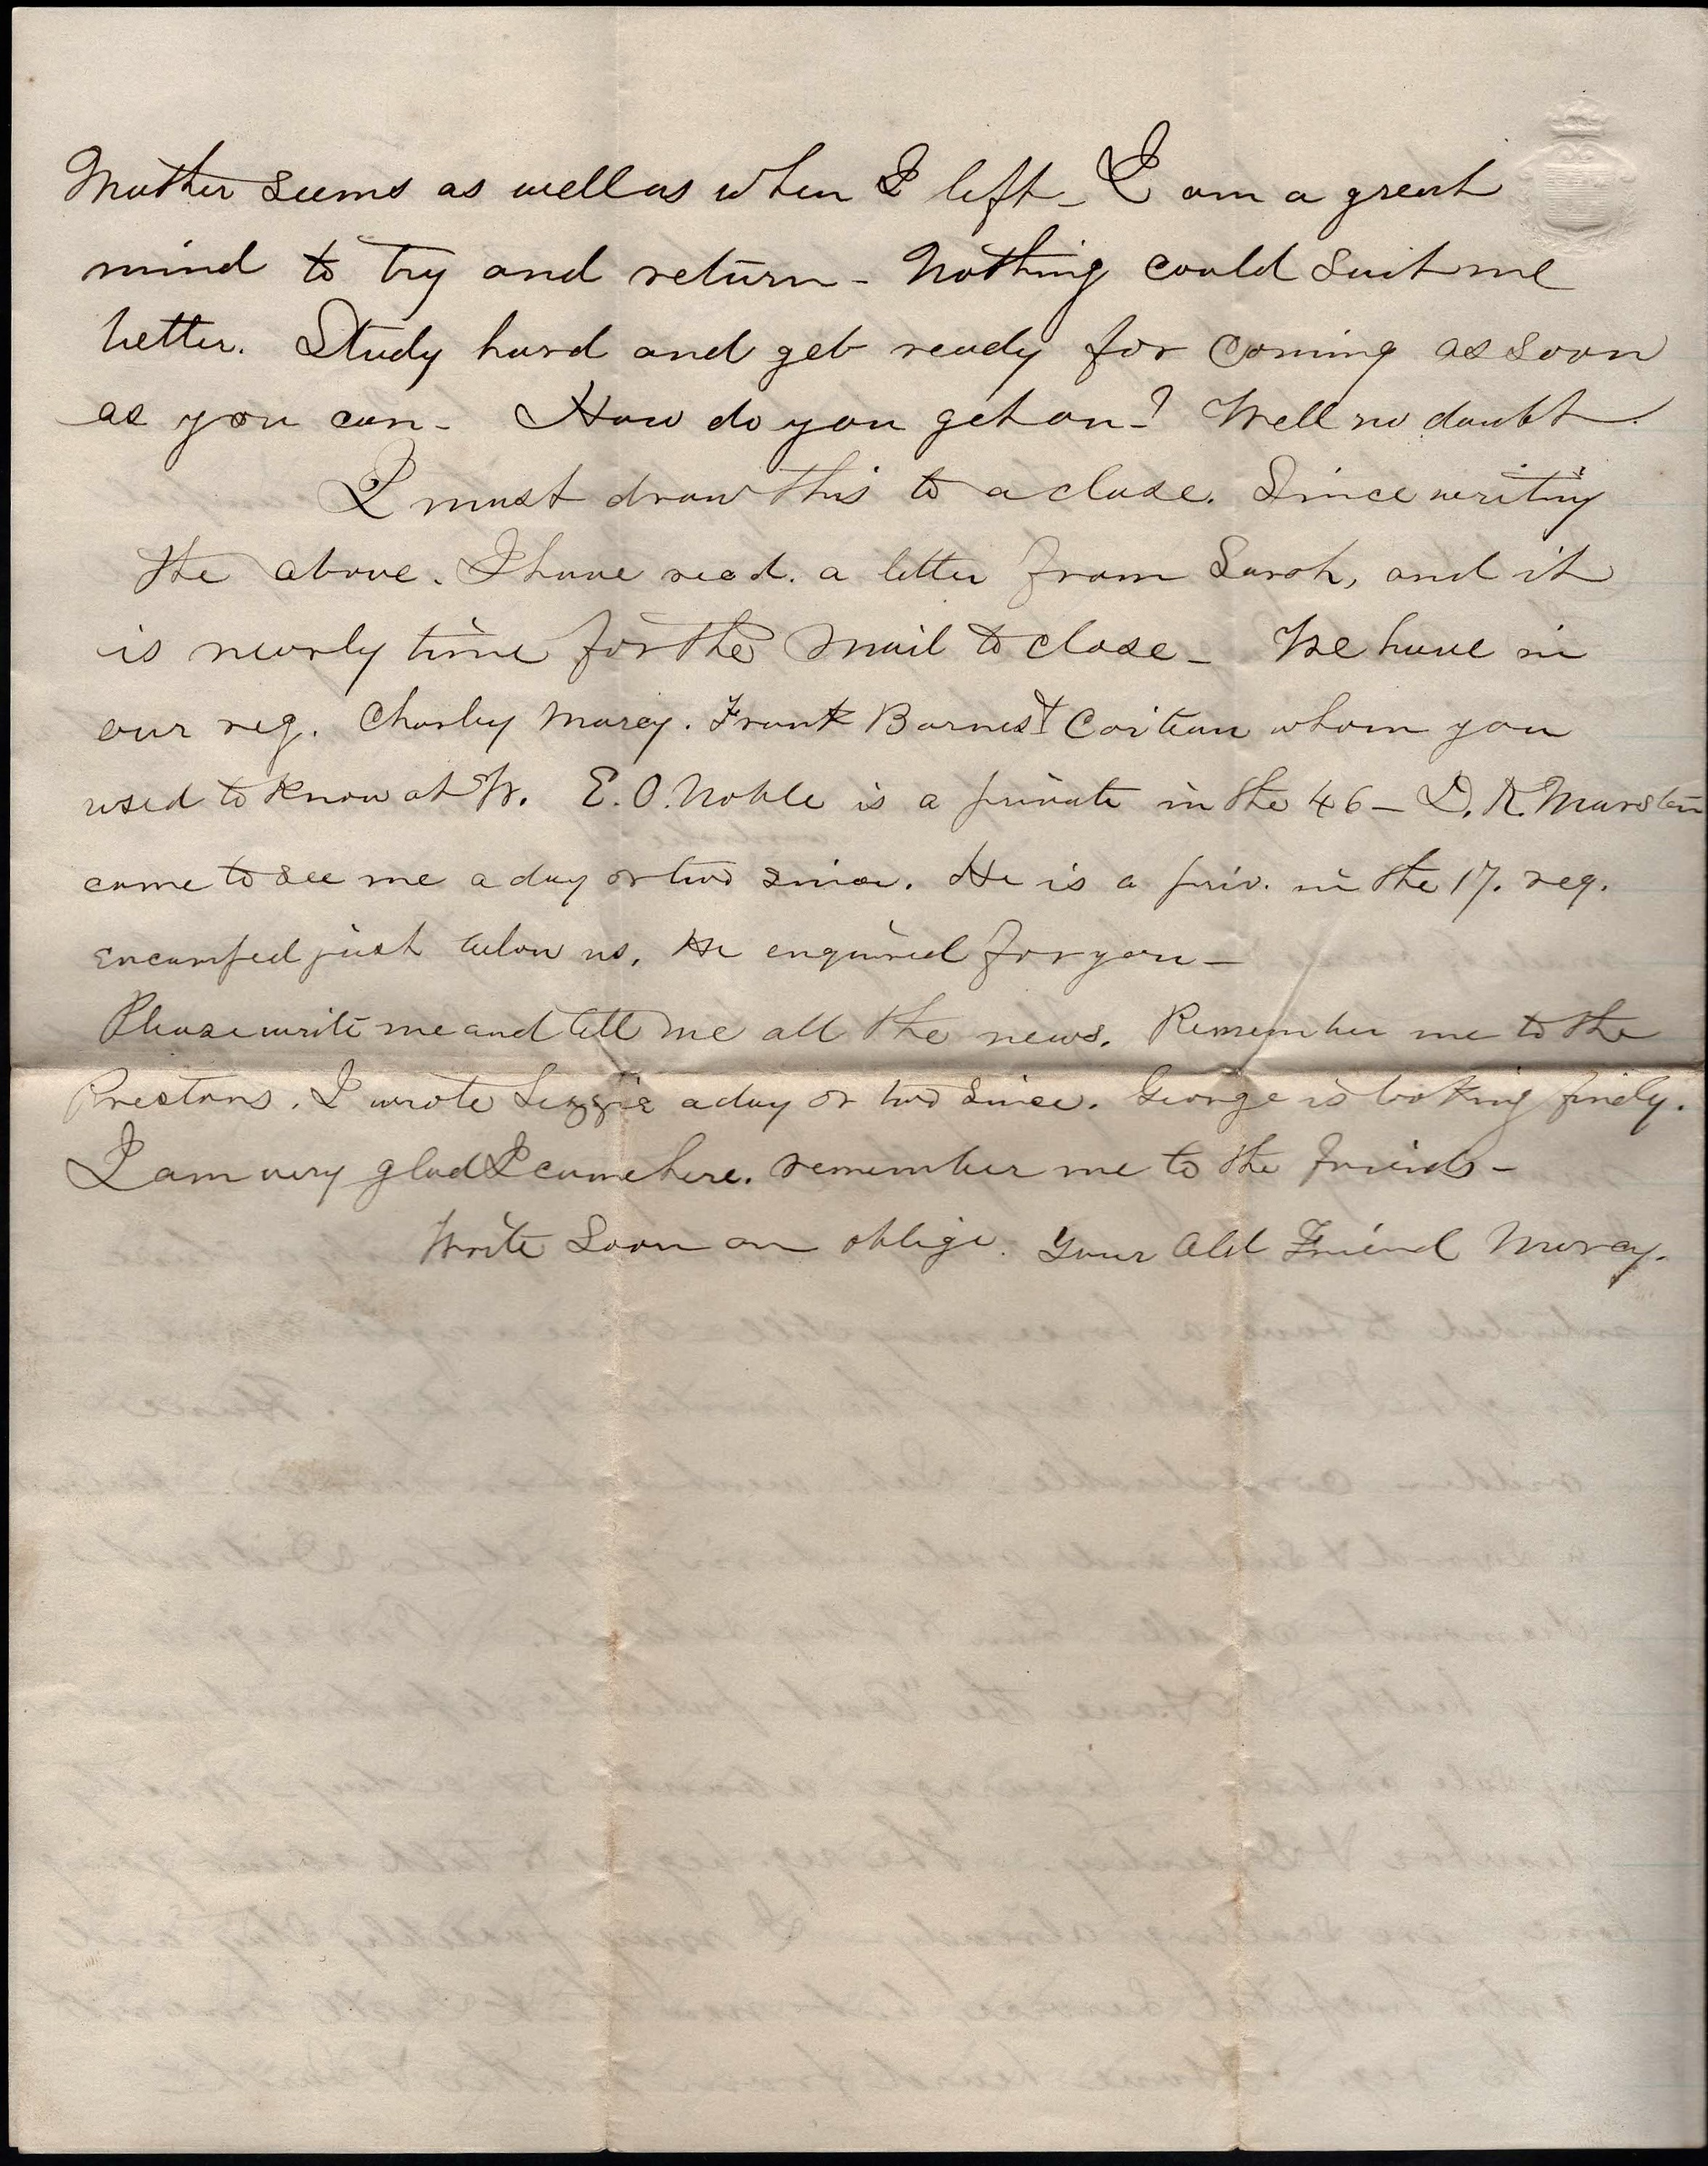 Mother seems as well as when I left_ I am a great
mind to try and return_ Nothing could suit me
better. Study hard and get ready for coming as soon
as you can_ How do you get on_? Well no doubt.
I must draw this to a close. Since writing
the above. I have recd. a letter from Sarah, and it
is nearly time for the mail to close_ We have in
our reg. Charley Marcy. Frank Barnes & whom you
used to know at W. E. O. Noble is a private in the 46_ D. R. Marsten
came to see me a day or two since. He is a priv. in the 17. reg.
encamped just below us. He enquired for you_
Please write me and tell me all the news. Remember me to the
Prestons. I wrote Lizzie a day or two since. George is looking finely.
I am very glad I came here. remember me to the friends_
Write soon an oblige. Your Old Friend Murray.